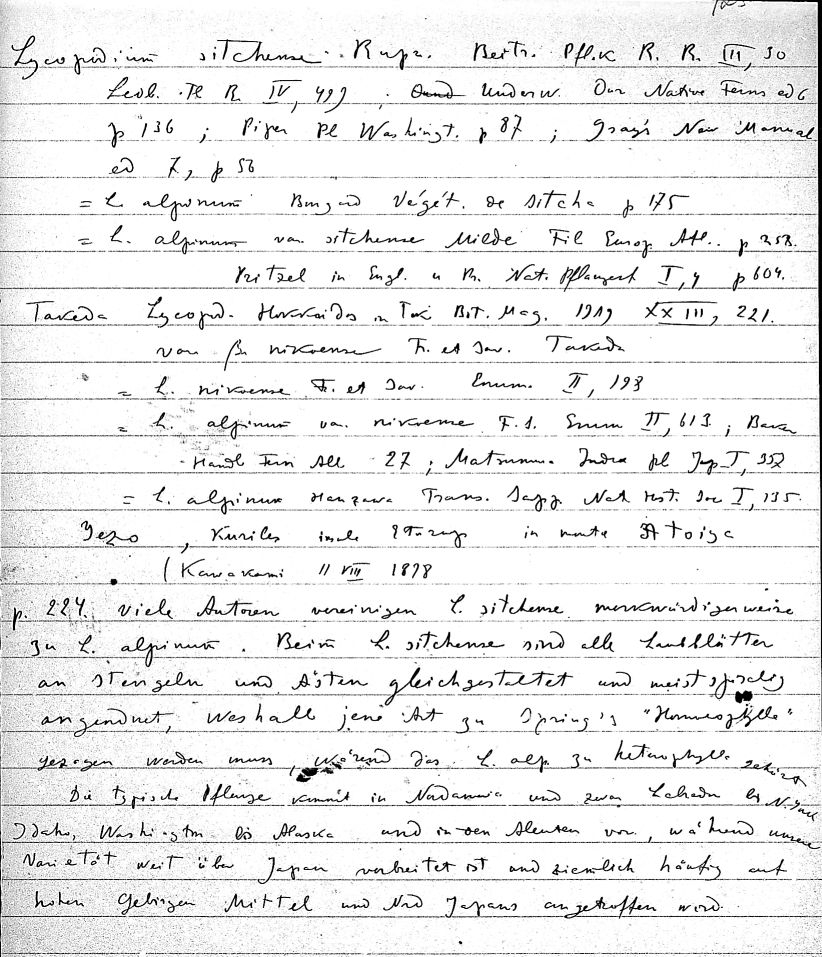 Lycopodium sitchense Rupr. Beitr. Pfl.k R. R. III, 30
Ledb. Fl R. IV, 499 ; Underw. Our Native Ferns ed 6
p 136 ; Piper Fl Washingt. p 87 ; Gray's New Manual
ed 7, p 56
= L. alpinum Bongard Végét. de Sitcha p 175
= L. alpinum var. sitchense Milde Fil Europ Atl.. p 258.
Pritzel in Engl. u Pr. Nat. Pflanzenf I, 4 p 604.
Takeda Lycopod. Hokkaidos in Tok Bot. Mag. 1919 XXIII, 221.
var β. nikoense Fr. et Sav. Takeda
= L. nikoense Fr. et Sav. Enum. II, 198
= L. alpinum var. nikoense F. S. Enum II, 613 ; Baker
Handb Fern All 27 ; Matsumura Index pl Jap I, 357
= L. alpinum Hanzawa Trans. Sapp Nat Hist. Soc I, 135.
Yezo , Kuriles insula Etorup in monte Atoiya
(Kawakami 11 VIII 1898
p. 224. viele Autoren vereinigen L. sitchense merkwürdigerweise
zu L. alpinum . Beim L. sitchense sind alle Laubblätter
an Stengeln und Ästen gleichgestaltet und meist spiralig
angeordnet, weshalb jene Art zu Spring's "Homoeophylla"
gezogen werden muss, während das L. alp. zu heterophylla gehört
Die typische Pflanze kommt in Nordamerica und zwar Labrador bis N. York
Idaho, Washington bis Alaska und in den Aleuten vor, während unsere
Varietät weit über Japan verbreitet ist und ziemlich häufig auf
hohen Gebirgen Mittel und Nord Japans angetroffen wird.